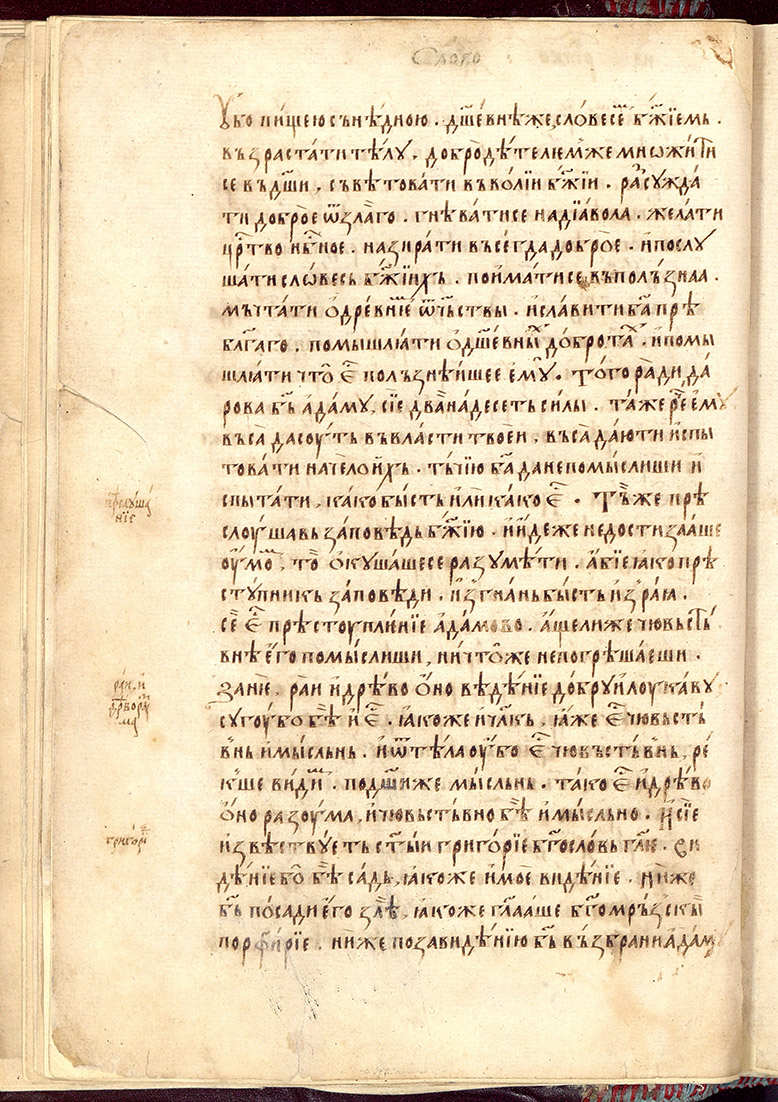 Слово
ѹбо пищею сънѣдною. дш҃евнѣже, словесе​м б҃жїемь.
възрастати тѣлу. добродѣтелемже множити
се въ дш҃и. съвѣтовати въ волїи б҃жїи. расужда
ти доброе ѿ злаго. гнѣватисе на дїавола. желати
цр҃тво нб҃ное. назирати въсегда доброе. и послу
шати словесь б҃жїихь. пойматисе въ полъзнаа.
мъчтати о древнїе ѿчьствы. и славити б҃а прѣ
бл҃гаго. помышлꙗти о дш҃евных добротах. и помы
шлꙗти что е҃ полъзнѣишее ему. того ради да
рова б҃ь адаму, сїе дванадесеть силы. таже рече ему
въса да сѹть въ власти твоеи, въса даю ти испы
товати на тело ихь. тъчїю б҃а да не помыслиши и
спытати, како бысть или како е҃. тѣже прѣ
слѹшавь заповѣдь б҃жїю. и идеже не достизааше
ѹмом, то окушашесе разумѣти. абїе ꙗко прѣ
ступникъ заповѣди. изгнань бысть из раꙗ.
се е҃ прѣстѹпленїе адамово. аще ли же чювьстъ
внѣ его помыслиши, ничтоже не погрѣшаеши.
зане, раи и дрѣво оно вѣдѣнїе добру и лѹкаву
сугѹбо бѣ и е҃. ꙗкоже и чл҃кь. ꙗже е҃ чювьстъ
внь и мысльнь. и ѿ тѣла ѹбо е҃ чювъстъвнь, ре
кше видим. по дш҃и же мысльнь. тако е҃ и дрѣво
оно разѹма, и чювьстъвно бѣ и мысльно. и сїе
извѣствуеть ст҃ыи григорїе б҃гословь гл҃ю. ви
дѣнїе бо бѣ садь, ꙗкоже и мое видѣнїе. ниже
б҃ь посади его злѣ, ꙗкоже гл҃ааше б҃гомръзскы
порфирїе. ниже по завидѣнїю б҃ь възбрани адаму
прѣслуша
нїе
раи, и
дрѣво разу
ма
григорї